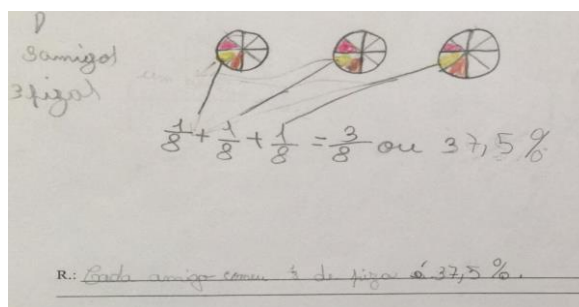 8 amigos
3 pizas
1/8 + 1/8 + 1/8 = 3/8 ou 37,5 %
R.: Cada amigo comeu de piza é 37,5 %.